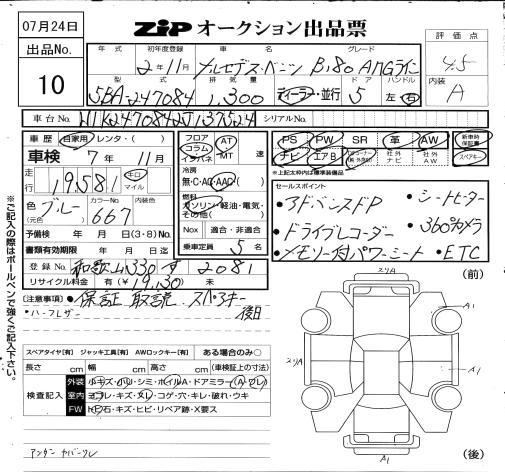 07月24日
ZiP オークション出品票
出品No.
10
年式 初年度登録 車名 グレード
2年11月 メルセデス・ベンツ B180 AMGライン
型式 排気量 ドア ハンドル
5BA-247084 1,300 ディーラー・並行 5 左・右
評価点
4.5
内装
A
車台No. シリアルNo.
車歴 自家用・レンタ・( )
車検 7年 11月
走行 19,581 キロ マイル
色 ブルー カラーNo. 667 内装色
(元色)
予備検 年 月 日(3・8)No.
書類有効期限 年 月 日迄
登録No. 和歌山330 す 2081
リサイクル料金 有(¥19,130) 未
フロア コラム インパネ AT MT 速
冷房 無・C・AC・AAC( )
燃料 ガソリン・軽油・電気・その他( )
Nox 適合・非適合
乗車定員 5名
PS PW SR 革 AW 新車時保証書
ナビ エアB 社外ナビ 社外AW スペアキー
*上記太枠内は標準装備品
セールスポイント
・アドバンスドP ・シートヒーター
・ドライブレコーダー ・360°カメラ
・メモリー付パワーシート ・ETC
(注意事項) ・保証 取説 スペアキー 後日
・ハーフレザー
スペアタイヤ[有] ジャッキ工具[有] AWロックキー[有] ある場合のみ○
長さ cm 幅 cm 高さ cm (車検証上の寸法)
検査記入
外装 小キズ・小凹・シミ・ホイルA・ドアミラー(A・ワレ)
室内 ヨゴレ・キズ・スレ・コゲ・穴・キレ・破れ・ウキ
FW トビ石・キズ・ヒビ・リペア跡・X要ス
アンダーカバーワレ
(前)
A1
A1
A1
(後)
※ご記入の際はボールペンで強くご記入下さい。